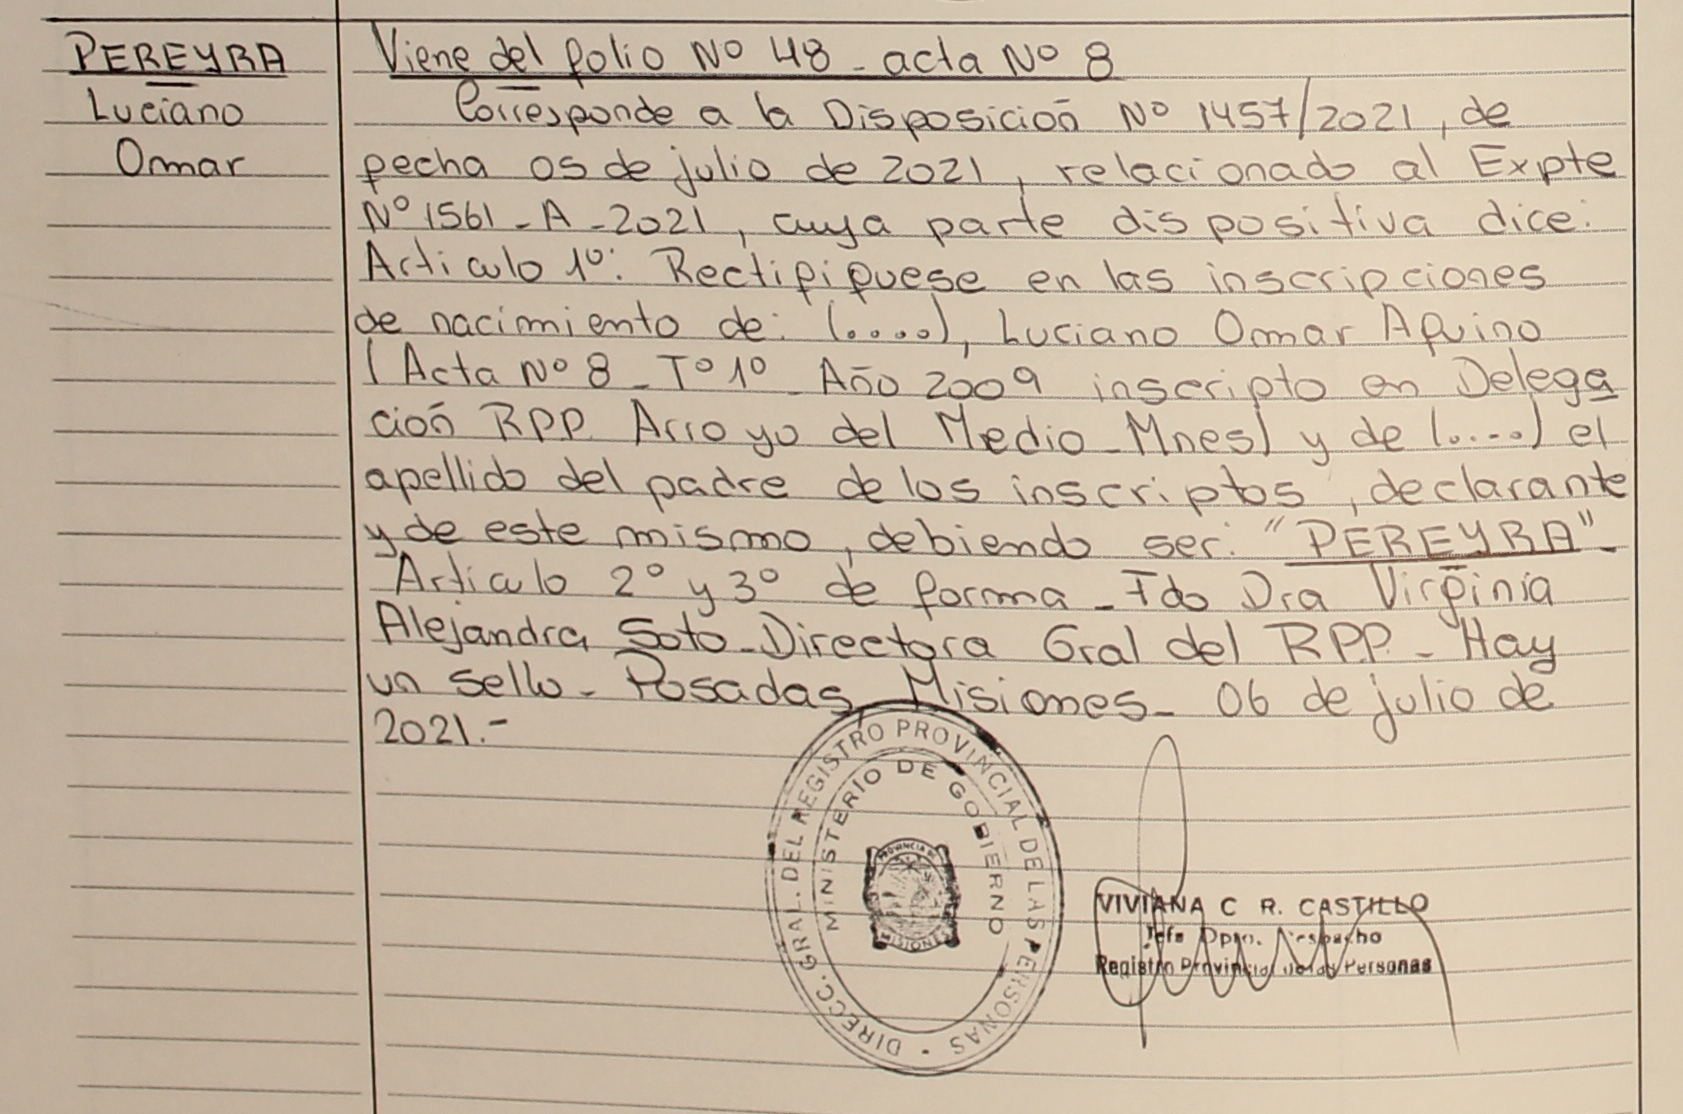 PEREYRA
Luciano
Omar
Viene del folio Nº 48 - acta Nº 8
Corresponde a la Disposición Nº 1457/2021, de
fecha 05 de julio de 2021, relacionado al Expte
Nº 1561 - A - 2021, cuya parte dispositiva dice:
Articulo 1º: Rectifiquese en las inscripciones
de nacimiento de: (....), Luciano Omar Aquino
(Acta Nº 8 - Tº 1º - Año 2009 inscripto en Delega
ción RPP. Arroyo del Medio - Mnes) y de (....) el
apellido del padre de los inscriptos, declarante
y de este mismo, debiendo ser: "PEREYRA"-
Articulo 2º y 3º de forma - Fdo Dra Virginia
Alejandra Soto - Directora Gral del RPP. - Hay
un sello - Posadas, Misiones - 06 de julio de
2021.-
DIRECC. GRAL. DEL REGISTRO PROVINCIAL DE LAS PERSONAS -
MINISTERIO DE GOBIERNO
PROVINCIA DE
MISIONES
VIVIANA C R. CASTILLO
Jefe Dpto. Despacho
Registro Provincial de las Personas